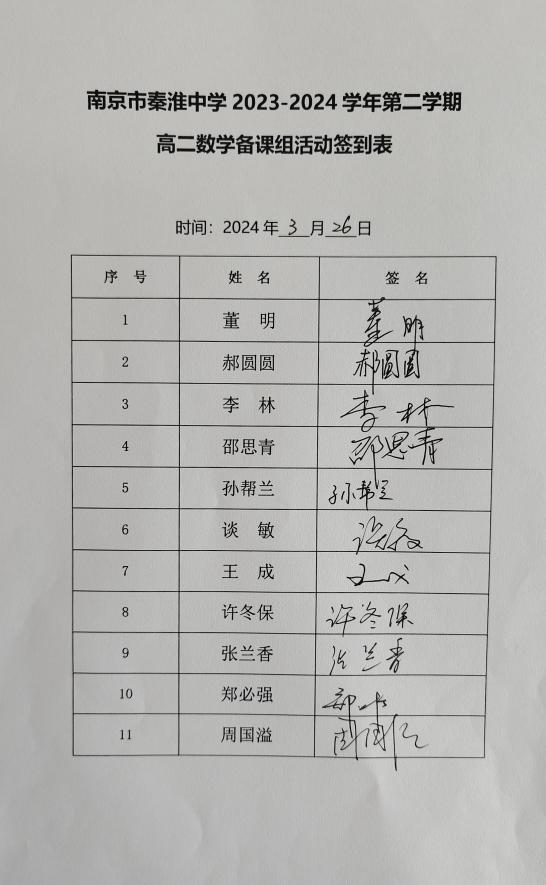 南京市秦淮中学 2023-2024 学年第二学期
高二数学备课组活动签到表
时间：2024 年 3 月 26 日
序 号 姓 名 签 名
1 董 明 董明
2 郝圆圆 郝圆圆
3 李 林 李林
4 邵思青 邵思青
5 孙帮兰 孙帮兰
6 谈 敏 谈敏
7 王 成 王成
8 许冬保 许冬保
9 张兰香 张兰香
10 郑必强 郑
11 周国溢 周国